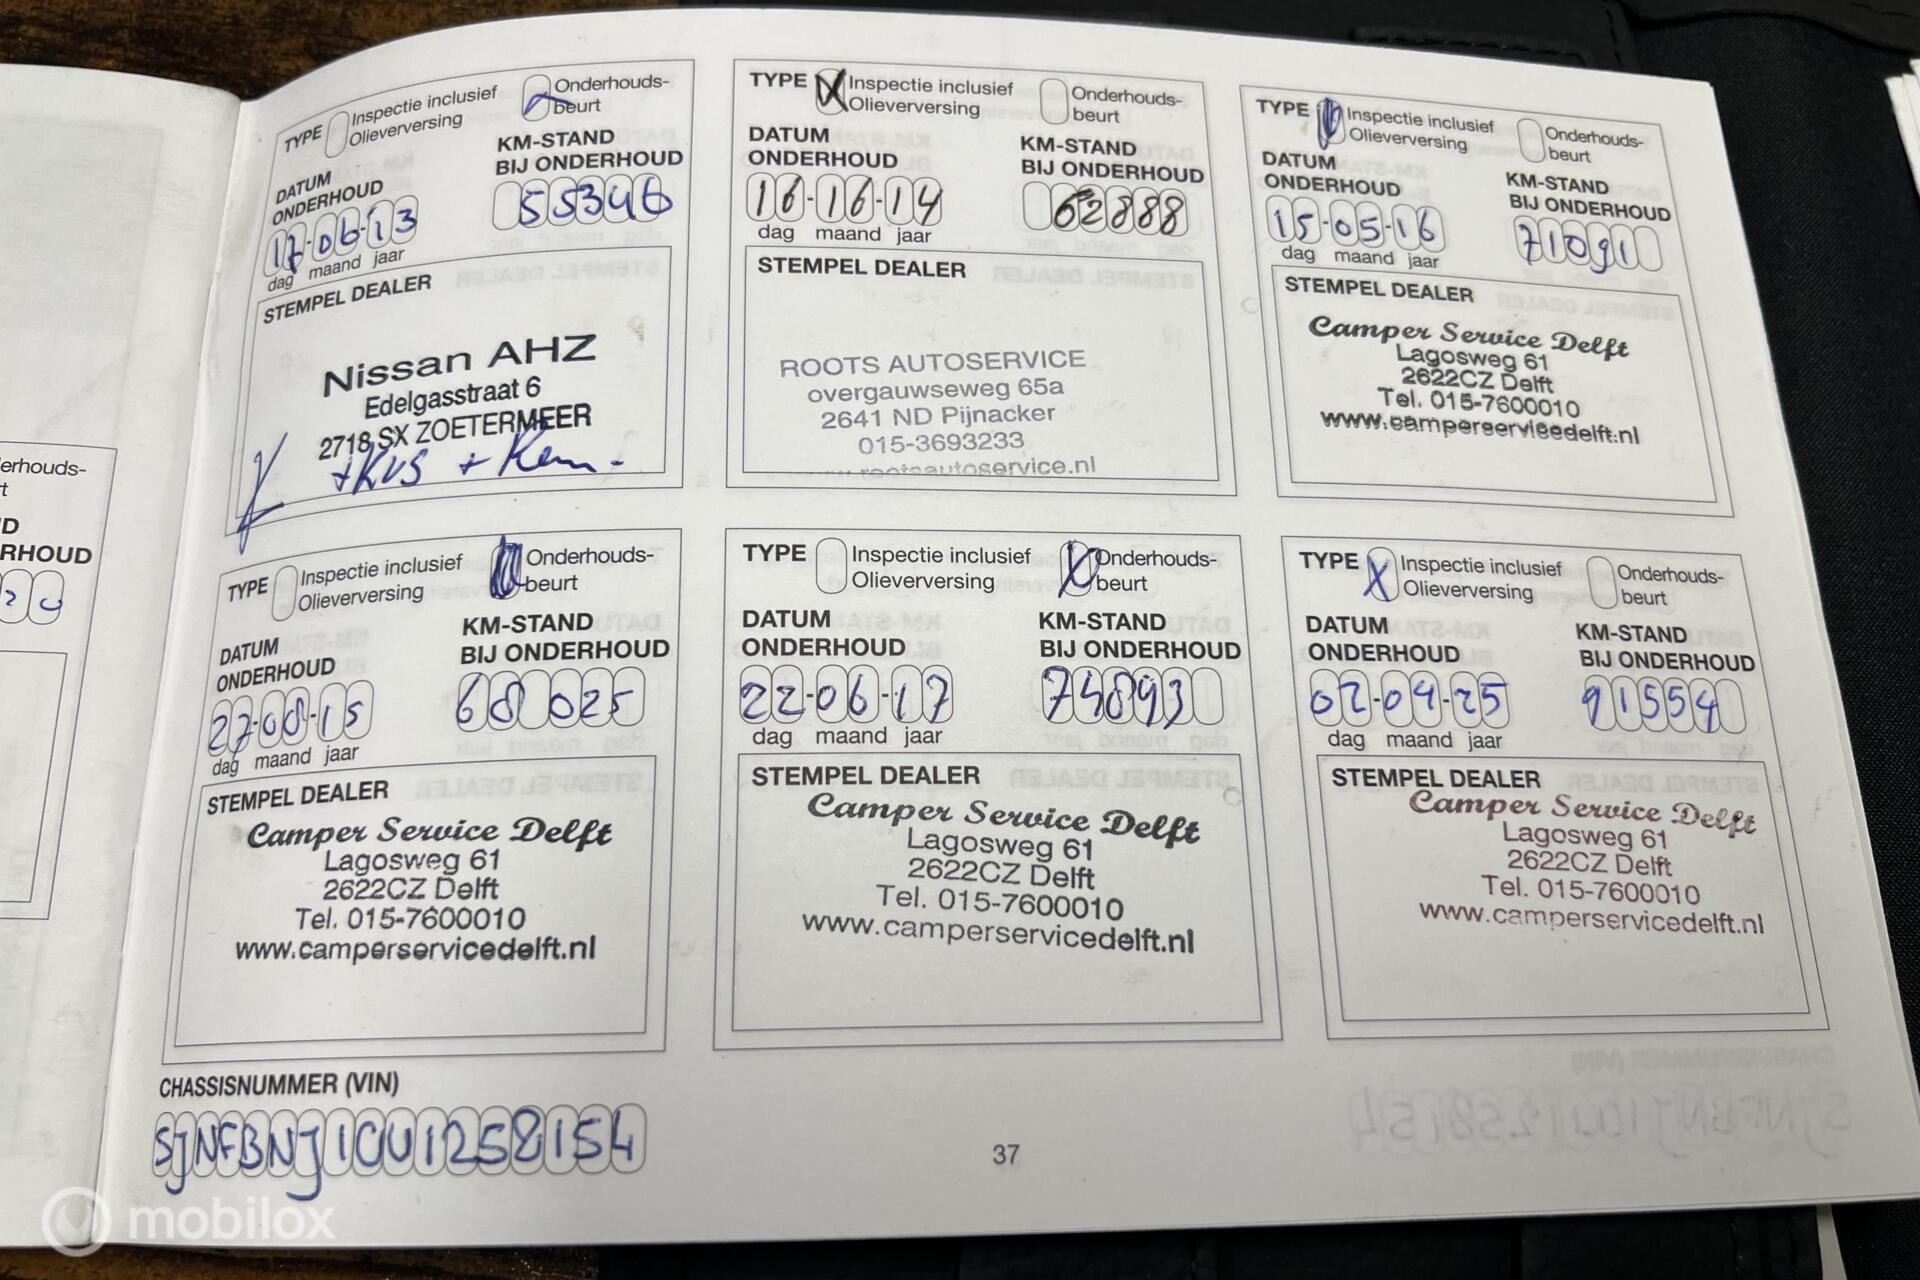 erhouds-
t
D
RHOUD
TYPE Inspectie inclusief Olieverversing
Onderhouds-beurt
DATUM ONDERHOUD
KM-STAND BIJ ONDERHOUD
17-06-13
55346
dag maand jaar
STEMPEL DEALER
Nissan AHZ
Edelgasstraat 6
2718 SX ZOETERMEER
TYPE X Inspectie inclusief Olieverversing
Onderhouds-beurt
DATUM ONDERHOUD
KM-STAND BIJ ONDERHOUD
16-16-14
62888
dag maand jaar
STEMPEL DEALER
ROOTS AUTOSERVICE
overgauwseweg 65a
2641 ND Pijnacker
015-3693233
www.rootsautoservice.nl
TYPE Inspectie inclusief Olieverversing
Onderhouds-beurt
DATUM ONDERHOUD
KM-STAND BIJ ONDERHOUD
15-05-16
71091
dag maand jaar
STEMPEL DEALER
Camper Service Delft
Lagosweg 61
2622CZ Delft
Tel. 015-7600010
www.camperservicedelft.nl
TYPE Inspectie inclusief Olieverversing
Onderhouds-beurt
DATUM ONDERHOUD
KM-STAND BIJ ONDERHOUD
27-08-15
68025
dag maand jaar
STEMPEL DEALER
Camper Service Delft
Lagosweg 61
2622CZ Delft
Tel. 015-7600010
www.camperservicedelft.nl
TYPE Inspectie inclusief Olieverversing
X Onderhouds-beurt
DATUM ONDERHOUD
KM-STAND BIJ ONDERHOUD
22-06-17
74893
dag maand jaar
STEMPEL DEALER
Camper Service Delft
Lagosweg 61
2622CZ Delft
Tel. 015-7600010
www.camperservicedelft.nl
TYPE X Inspectie inclusief Olieverversing
Onderhouds-beurt
DATUM ONDERHOUD
KM-STAND BIJ ONDERHOUD
02-04-25
91554
dag maand jaar
STEMPEL DEALER
Camper Service Delft
Lagosweg 61
2622CZ Delft
Tel. 015-7600010
www.camperservicedelft.nl
CHASSISNUMMER (VIN)
SJNFBNJ10U1258154
37
mobilox